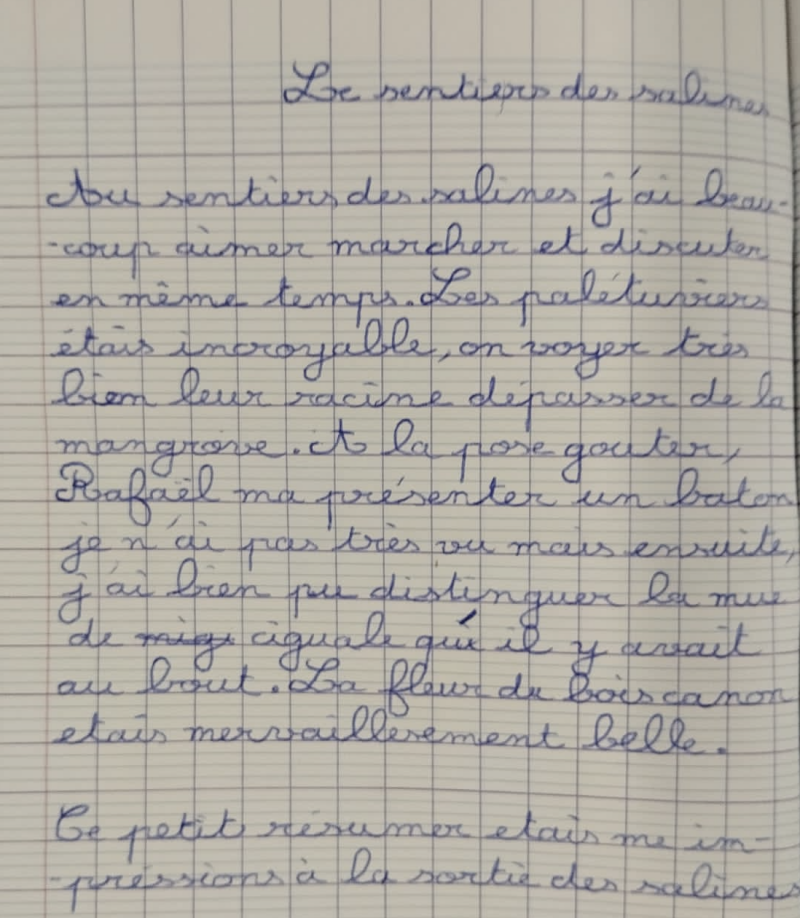 Le sentiers des salines
Au sentiers des salines j'ai beau-
-coup aimer marcher et discuter
en même temps. Les palétuviers
étais incroyable, on voyer très
bien leur racine dépasser de la
mangrove. A la pose gouter,
Rafaël ma présenter un baton
je n'ai pas très vu mais ensuite,
j'ai bien pu distinguer la mue
de ciguale qui il y avait
au bout. La fleur du bois canon
etais mervaillesement belle.
Ce petit résumer etais me im-
-pressions à la sortie des salines